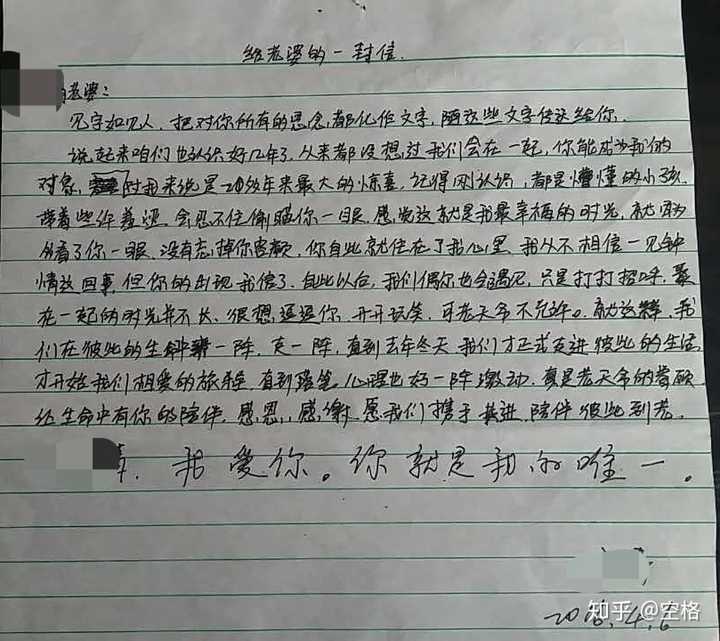 给老婆的一封信.
老婆:
见字如见人, 把对你所有的思念, 都化作文字, 随这些文字传送给你.
说起来咱们也认识好几年了, 从来都没想过我们会在一起, 你能成为我的
对象, 对我来说是20多年来最大的惊喜, 记得刚认识, 都是懵懂的小孩.
带着些许羞涩, 会忍不住偷瞄你一眼, 感觉这就是我最幸福的时光, 就因为
多看了你一眼, 没有忘掉你容颜, 你自此就住在了我心里, 我从不相信一见钟
情这回事, 但你的出现我信了. 自此以后, 我们偶尔也会遇见, 只是打打招呼,
在一起的时光并不长, 很想逗逗你, 开开玩笑, 可老天爷不允许。就这样, 我
们在彼此的生 一阵, 一阵, 直到去年冬天我们才正式走进彼此的生活
才开始我们相爱的旅程, 直到 心理也好一阵激动, 真是老天爷的眷顾
给生命中有你的陪伴, 感恩, 感谢, 愿我们携手共进, 陪伴彼此到老.
我爱你。你就是我的唯一.
4.6
知乎 @空格